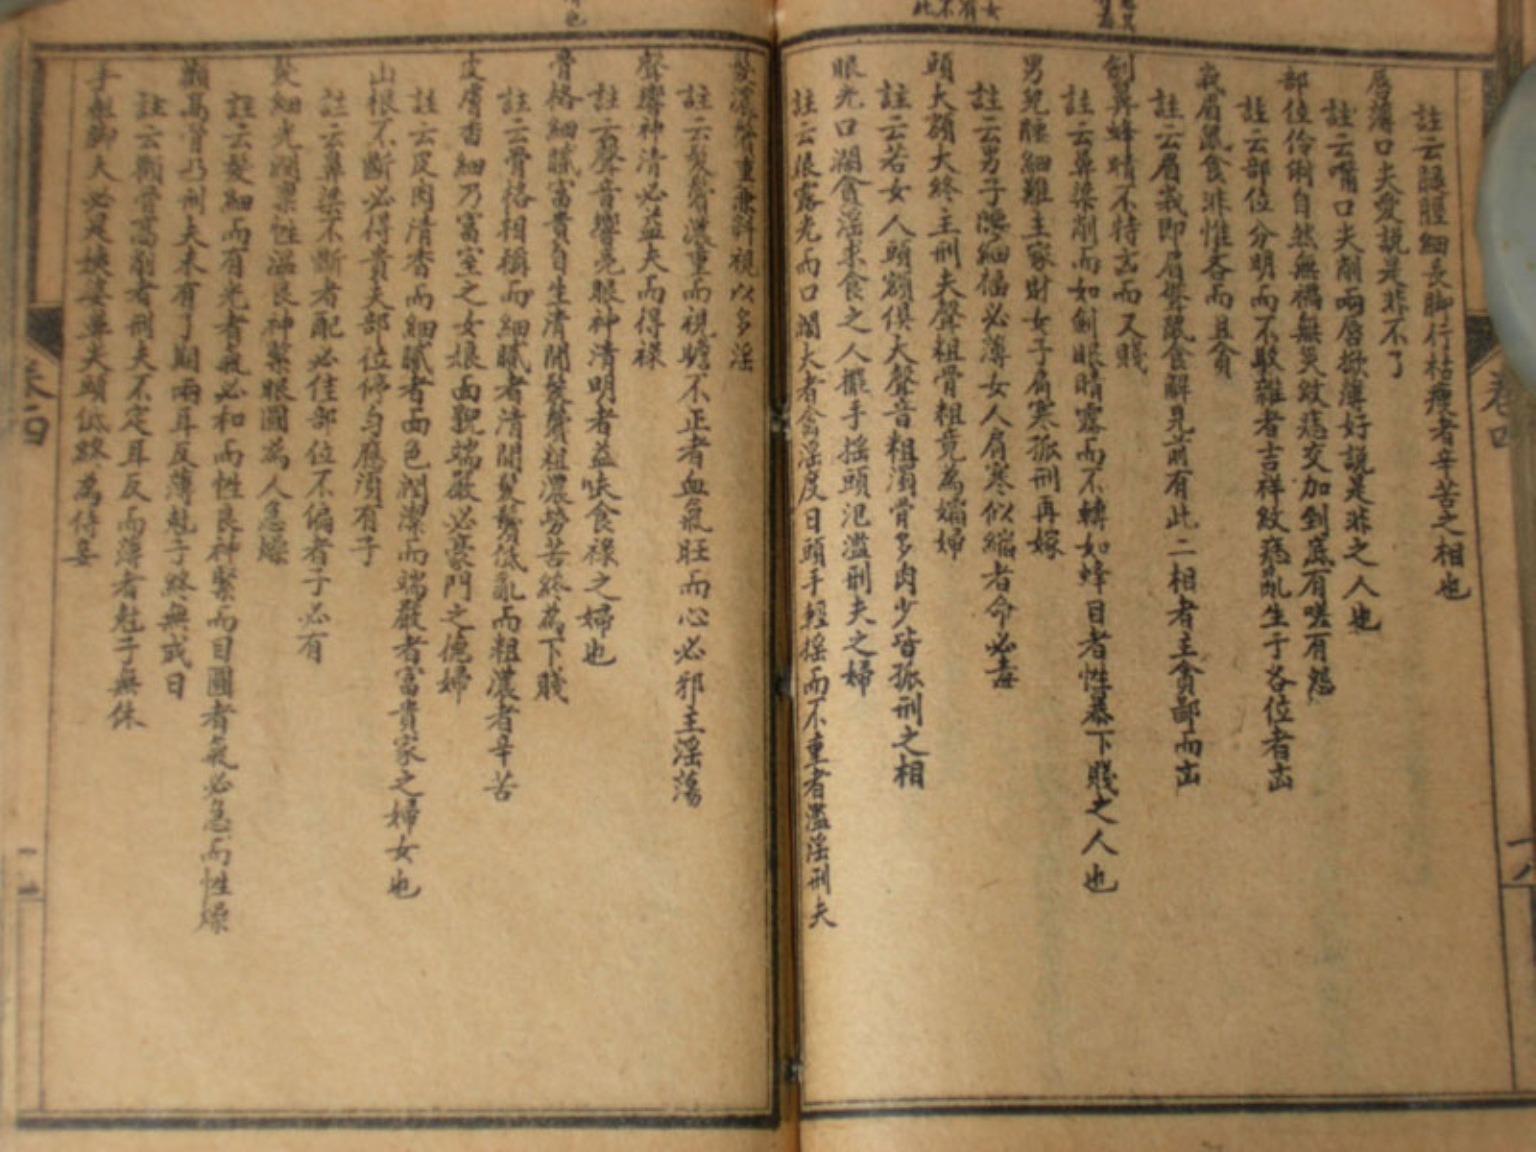 註云腿脛細長脚行枯瘦者辛苦之相也
唇薄口尖愛說是非不了
註云嘴口尖削兩唇掀薄好說是非之人也
部位伶俐自然無禍無災紋痣交加到底有嗟有怨
註云部位分明而不駁雜者吉祥紋痣亂生于各位者凶
註云眉義即眉聲鼠食解見前有此二相者主貪鄙而凶
劍鼻蜂睛不特凶而又賤
註云鼻梁削而如劍眼睛露而不轉如蜂目者性暴下賤之人也
男兒腰細難主家財女子肩寒孤刑再嫁
註云男子腰細福必薄女人肩寒似縮者命必毒
頭大額大終主刑夫聲粗骨粗竟為孀婦
註云若女人頭額俱大聲音粗濁骨多肉少皆孤刑之相
眼光口濶貪淫求食之人擺手搖頭氾濫刑夫之婦
註云眼露光而口濶大者貪淫度日頭手輕搖而不重者濫淫刑夫
髮濃鬢重兼斜視以多淫
註云髮鬢濃重而視瞻不正者血氣旺而心必邪主淫蕩
聲響神清必益夫而得祿
註云聲音響亮眼神清明者益夫食祿之婦也
骨格細膩富貴自生清閒髮鬢粗濃勞苦終為下賤
註云骨格相稱而細膩者清閒髮鬢低亂而粗濃者辛苦
皮膚香細乃富室之女娘面貌端嚴必豪門之德婦
註云皮肉清香而細膩者面色潤潔而端嚴者富貴家之婦女也
山根不斷必得貴夫部位停勻應須有子
註云鼻梁不斷者配必佳部位不偏者子必有
髮細光潤稟性溫良神緊眼圓為人急燥
註云髮細而有光者氣必和而性良神緊而目圓者氣必急而性燥
顴高骨凸刑夫未有了期兩耳反薄尅子終無或日
註云顴骨高削者刑夫不定耳反而薄者尅子無休
手粗脚大必是姨婆鼻尖頭低終為侍妾
卷四
卷四